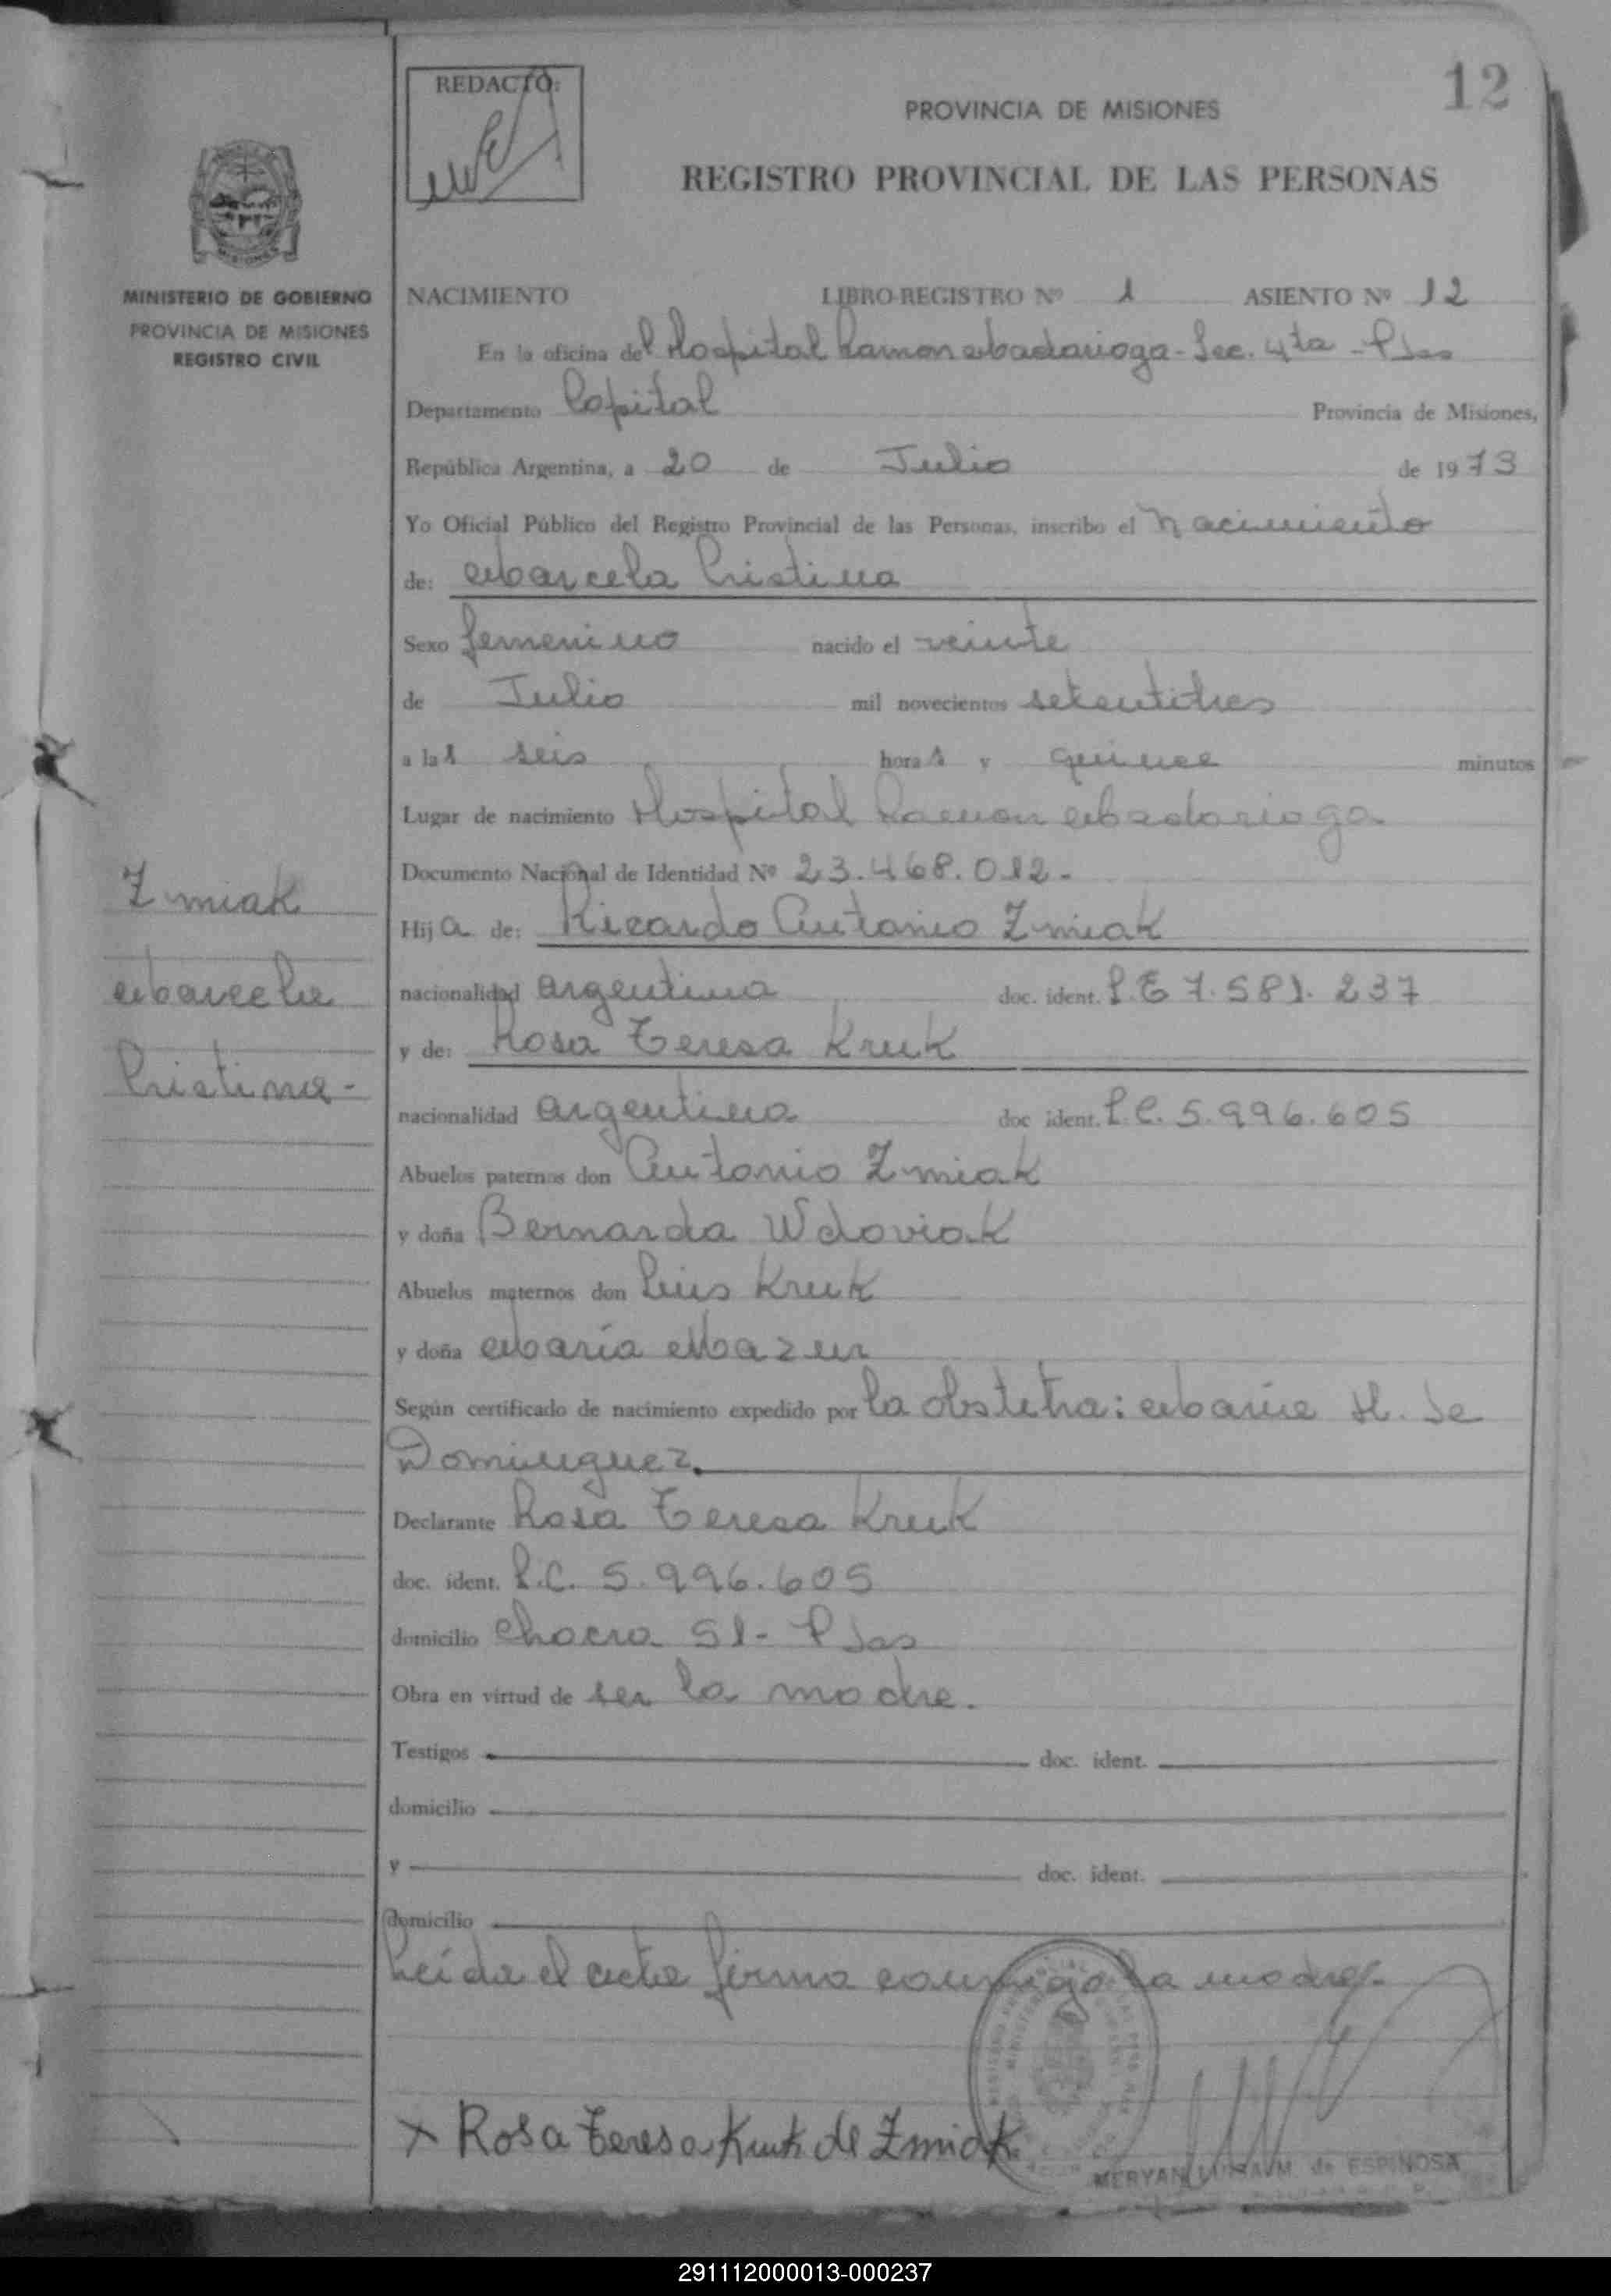 12
REDACTO:
PROVINCIA DE MISIONES
REGISTRO PROVINCIAL DE LAS PERSONAS
MISIONES
MINISTERIO DE GOBIERNO
PROVINCIA DE MISIONES
REGISTRO CIVIL
Zmiak
Marcela
Cristina-
NACIMIENTO LIBRO-REGISTRO Nº 1 ASIENTO Nº 12
En la oficina del Hospital Ramon Madariaga - Sec. 4ta - Pdas
Departamento Capital Provincia de Misiones,
República Argentina, a 20 de Julio de 1973
Yo Oficial Público del Registro Provincial de las Personas, inscribo el nacimiento
de: Marcela Cristina
Sexo femenino nacido el veinte
de Julio mil novecientos setentitres
a las seis horas y quince minutos
Lugar de nacimiento Hospital Ramon Madariaga
Documento Nacional de Identidad Nº 23.468.012.-
Hija de: Ricardo Antonio Zmiak
nacionalidad argentina doc. ident. L.E 7.581.237
y de: Rosa Teresa Kruk
nacionalidad argentina doc ident. L.C. 5.996.605
Abuelos paternos don Antonio Zmiak
y doña Bernarda Wdoviak
Abuelos maternos don Luis Kruk
y doña María Mazur
Según certificado de nacimiento expedido por la obstetra: María H. de
Dominguez.
Declarante Rosa Teresa Kruk
doc. ident. L.C. 5.996.605
domicilio Chacra 51- Pdas
Obra en virtud de ser la madre.
Testigos doc. ident.
domicilio
y doc. ident.
domicilio
Leída el acta firma conmigo la madre.-
x Rosa Teresa Kruk de Zmiak
MERYAN de ESPINOSA
291112000013-000237